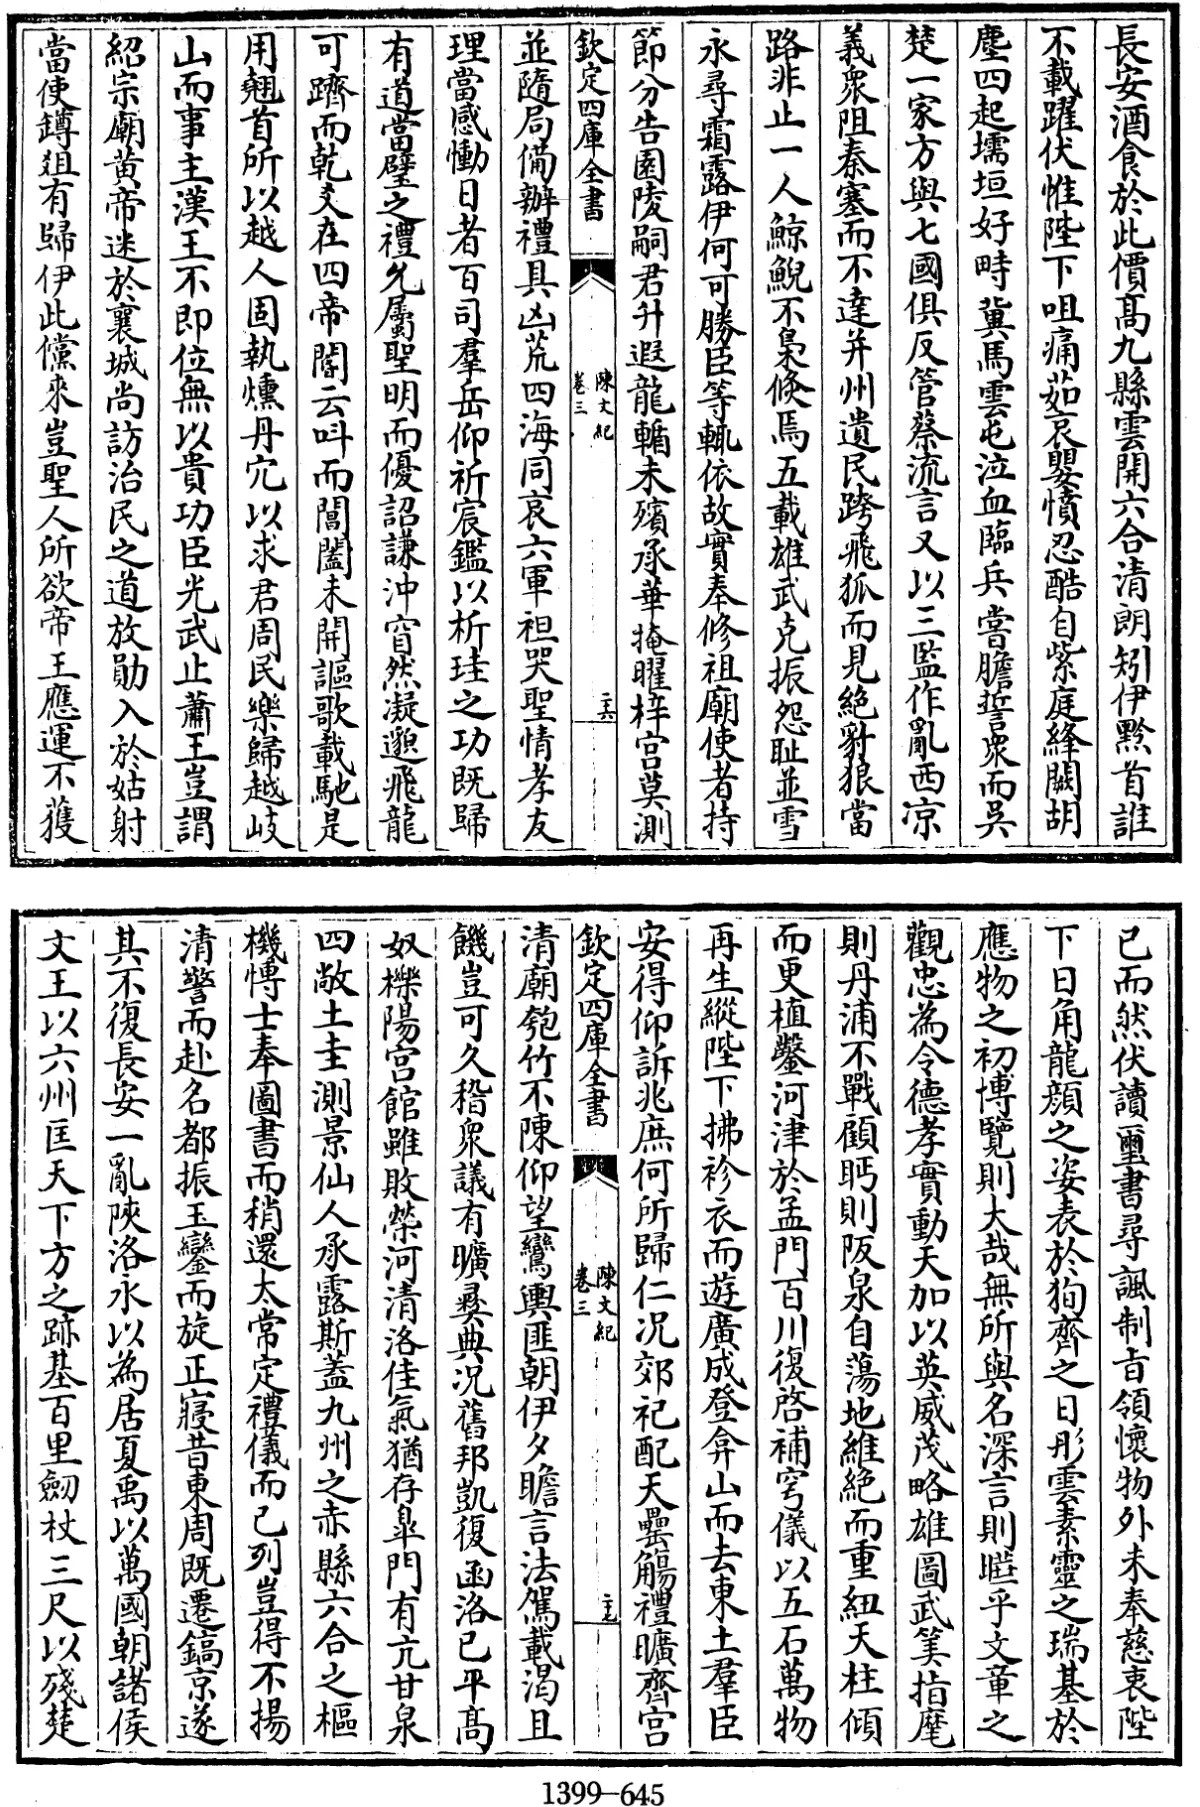 長安酒食於此價髙九縣雲開六合清朗矧伊黔首誰
不載躍伏惟陛下咀痛茹哀嬰憤忍酷自紫庭絳闕胡
塵四起壖垣好畤冀馬雲屯泣血臨兵嘗膽誓衆而吳
楚一家方與七國俱反管蔡流言又以三監作亂西凉
義衆阻秦塞而不達并州遺民跨飛狐而見絶豺狼當
路非止一人鯨鯢不梟倐焉五載雄武克振怨恥並雪
永尋霜露伊何可勝臣等輒依故實奉修祖廟使者持
節分告園陵嗣君升遐龍輴未殯承華掩曜梓宮莫測
欽定四庫全書
陳文紀
卷三
二六
並隨局備辦禮具凶荒四海同哀六軍袒哭聖情孝友
理當感慟日者百司羣岳仰祈宸鑑以析珪之功既歸
有道當璧之禮允屬聖明而優詔謙沖窅然凝邈飛龍
可躋而乾爻在四帝閽云叫而閶闔未開謳歌載馳是
用翹首所以越人固執熏丹穴以求君周民樂歸越岐
山而事主漢王不即位無以貴功臣光武止蕭王豈謂
紹宗廟黄帝迷於襄城尚訪治民之道放勛入於姑射
當使罇俎有歸伊此儻來豈聖人所欲帝王應運不獲
已而然伏讀璽書尋諷制旨領懷物外未奉慈衷陛
下日角龍顔之姿表於徇齊之日彤雲素靈之瑞基於
應物之初博覽則大哉無所與名深言則曖乎文章之
觀忠為令德孝實動天加以英威茂略雄圖武筭指麾
則丹浦不戰顧眄則阪泉自蕩地維絶而重紐天柱傾
而更植鑿河津於孟門百川復啓補穹儀以五石萬物
再生縱陛下拂袗衣而遊廣成登弇山而去東土羣臣
安得仰訴兆庶何所歸仁况郊祀配天罍觴禮曠齋宮
欽定四庫全書
陳文紀
卷三
二七
清廟匏竹不陳仰望鸞輿匪朝伊夕瞻言法駕載渴且
饑豈可久稽衆議有曠彛典况舊邦凱復函洛已平髙
奴櫟陽宮館雖敗榮河清洛佳氣猶存臯門有亢甘泉
四敞土圭測景仙人承露斯蓋九州之赤縣六合之樞
機慱士奉圖書而稍還太常定禮儀而已列豈得不揚
清警而赴名都振玉鑾而旋正寢昔東周既遷鎬京遂
其不復長安一亂陝洛永以為居夏禹以萬國朝諸侯
文王以六州匡天下方之跡基百里劒杖三尺以殘楚
1399-645